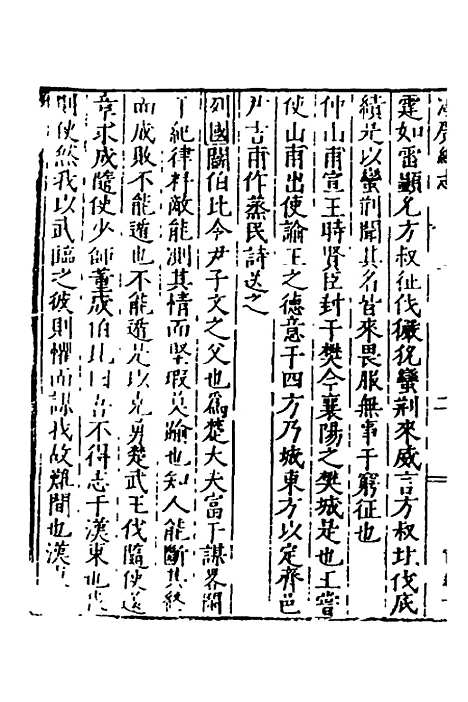 霆如雷顯允方叔征伐玁狁蠻荊來威言方叔北伐底
績是以蠻荊聞其名皆來畏服無事于窮征也
仲山甫宣王時賢臣封于樊今襄陽之樊城是也王嘗
使山甫出使諭王之德意于四方乃城東方以定齊邑
尹吉甫作蒸民詩送之
列國鬭伯比令尹子文之父也為楚大夫富于謀畧閑
于紀律料敵能測其情而堅瑕莫踰也知人能斷其終
而成敗不能遁也不能遁是以克勇楚武王伐隨使薳
章求成隨使少師董成伯比曰吾不得志于漢東也
則使然我以武臨之彼則懼而謀我故難間也漢